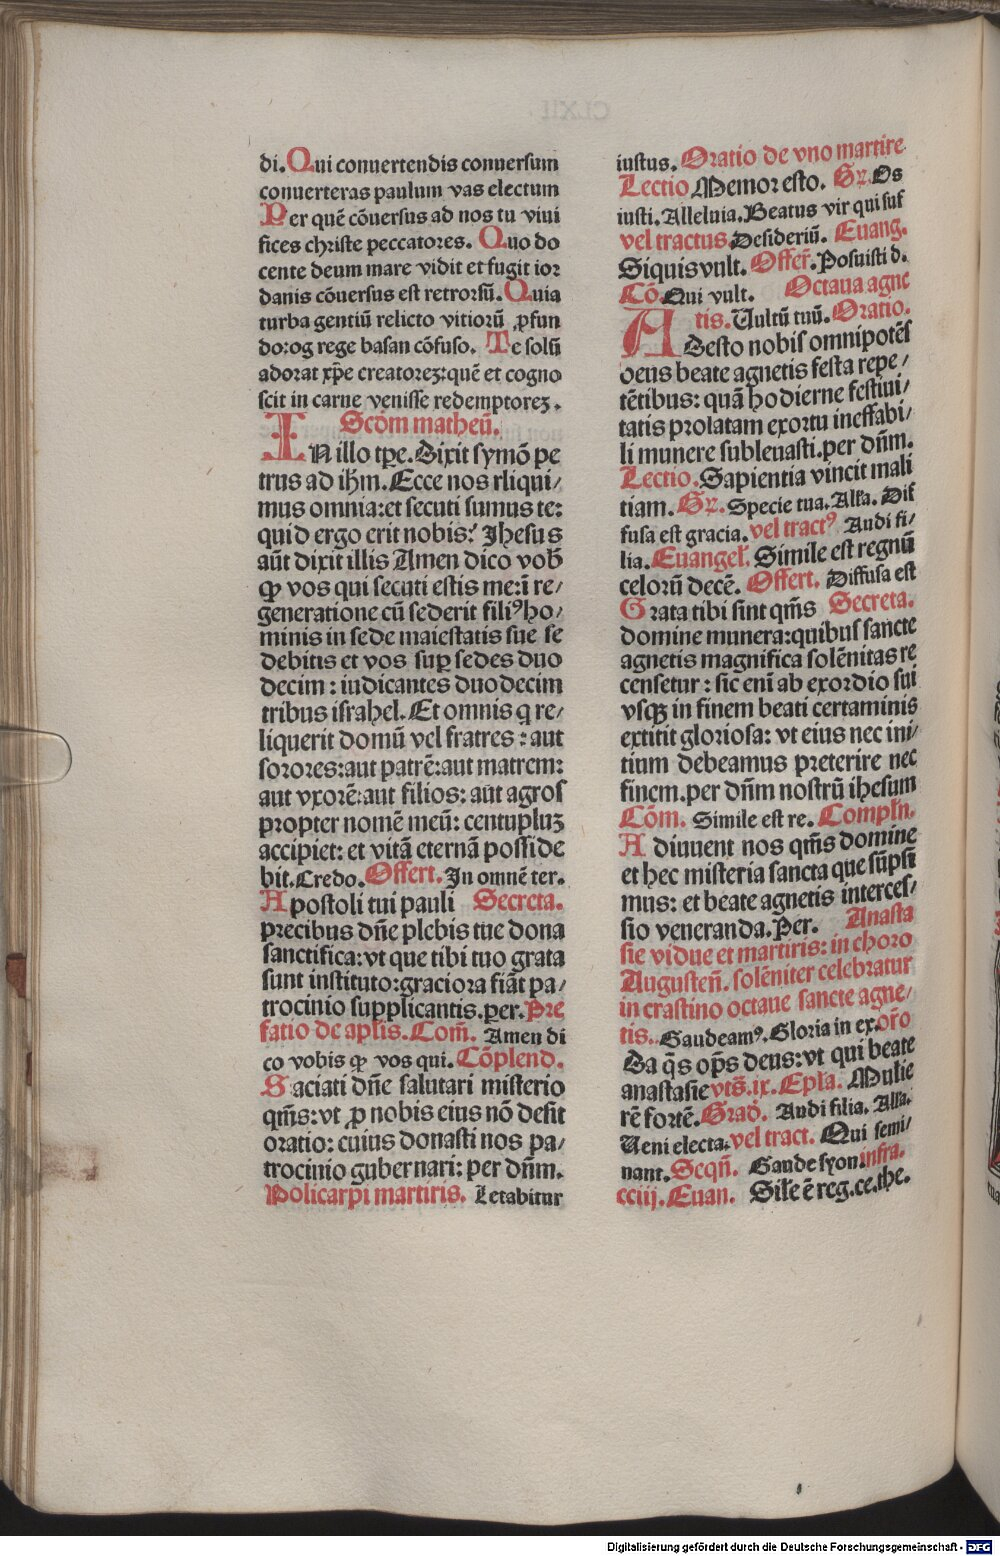 di. Qui conuertendis conuersum
conuerteras paulum vas electum
Per quē cōuersus ad nos tu viui
fices christe peccatores. Quo do
cente deum mare vidit et fugit ior
danis cōuersus est retrorsū. Quia
turba gentiū relicto vitiorū ꝓfun
do: og rege basan cōfuso. Te solū
adorat xp̄e creatoreꝫ: quē et cogno
scit in carne venisse redemptoreꝫ.
Scd̄m matheū.
IN illo tꝑe. Dixit symō pe
trus ad ih̄m. Ecce nos rliqui/
mus omnia: et secuti sumus te:
quid ergo erit nobis? Jhesus
aūt dixit illis Amen dico vob̄
ꝙ vos qui secuti estis me: ī re/
generatione cū sederit filiꝰ ho/
minis in sede maiestatis sue se
debitis et vos suꝑ sedes duo
decim: iudicantes duodecim
tribus israhel. Et omnis q re/
liquerit domū vel fratres: aut
sorores: aut patrē: aut matrem:
aut vxorē: aut filios: aūt agros
propter nomē meū: centupluꝫ
accipiet: et vitā eternā posside
bit. Credo. Offert. In omnē ter.
Apostoli tui pauli Secreta.
precibus dn̄e plebis tue dona
sanctifica: vt que tibi tuo grata
sunt instituto: graciora fiāt pa/
trocinio supplicantis. per. Pre
fatio de apl̄is. Com̄. Amen di
co vobis ꝙ vos qui. Cōplend.
Saciati dn̄e salutari misterio
qm̄s: vt ꝓ nobis eius nō desit
oratio: cuius donasti nos pa/
trocinio gubernari: per dn̄m.
Policarpi martiris. Letabitur
CLXII
iustus. Oratio de vno martire
Lectio Memor esto. Gr̄. Os
iusti. Alleluia. Beatus vir qui suf
vel tractus. Desideriū. Euang.
Siquis vult. Offer̄. Posuisti d.
Cō. Qui vult. Octaua agne
tis. Uultū tuū. Oratio.
ADesto nobis omnipotēs
deus beate agnetis festa repe/
tētibus: quā hodierne festiui/
tatis prolatam exortu ineffabi/
li munere subleuasti. per dn̄m.
Lectio. Sapientia vincit mali
tiam. Gr̄. Specie tua. Alla. Dif
fusa est gracia. vel tractꝰ Audi fi/
lia. Euangel̄. Simile est regnū
celorū decē. Offert. Diffusa est
Grata tibi sint qm̄s Secreta.
domine munera: quibus sancte
agnetis magnifica solēnitas re
censetur: sic eni ab exordio sui
vsqꝫ in finem beati certaminis
extitit gloriosa: vt eius nec ini/
tium debeamus preterire nec
finem. per dn̄m nostrū ihesum
Cōm. Simile est re. Compln̄.
Adiuuent nos qm̄s domine
et hec misteria sancta que sūpsi
mus: et beate agnetis interces/
sio veneranda. Per. Anasta
sie vidue et martiris: in choro
Augusten̄. solēniter celebratur
in crastino octaue sancte agne/
tis. Gaudeamꝰ. Gloria in ex. or̄o
Da q̄s op̄s deus: vt qui beate
anastasie vts̄. ix. Epl̄a. Mulie
rē fortē. Grad̄. Audi filia. Alla.
Ueni electa. vel tract. Qui semi/
nant. Seqn̄. Gaude syon infra.
cciij. Euan. Sil̄e ē reg. ce. the.
Digitalisierung gefördert durch die Deutsche Forschungsgemeinschaft - DFG